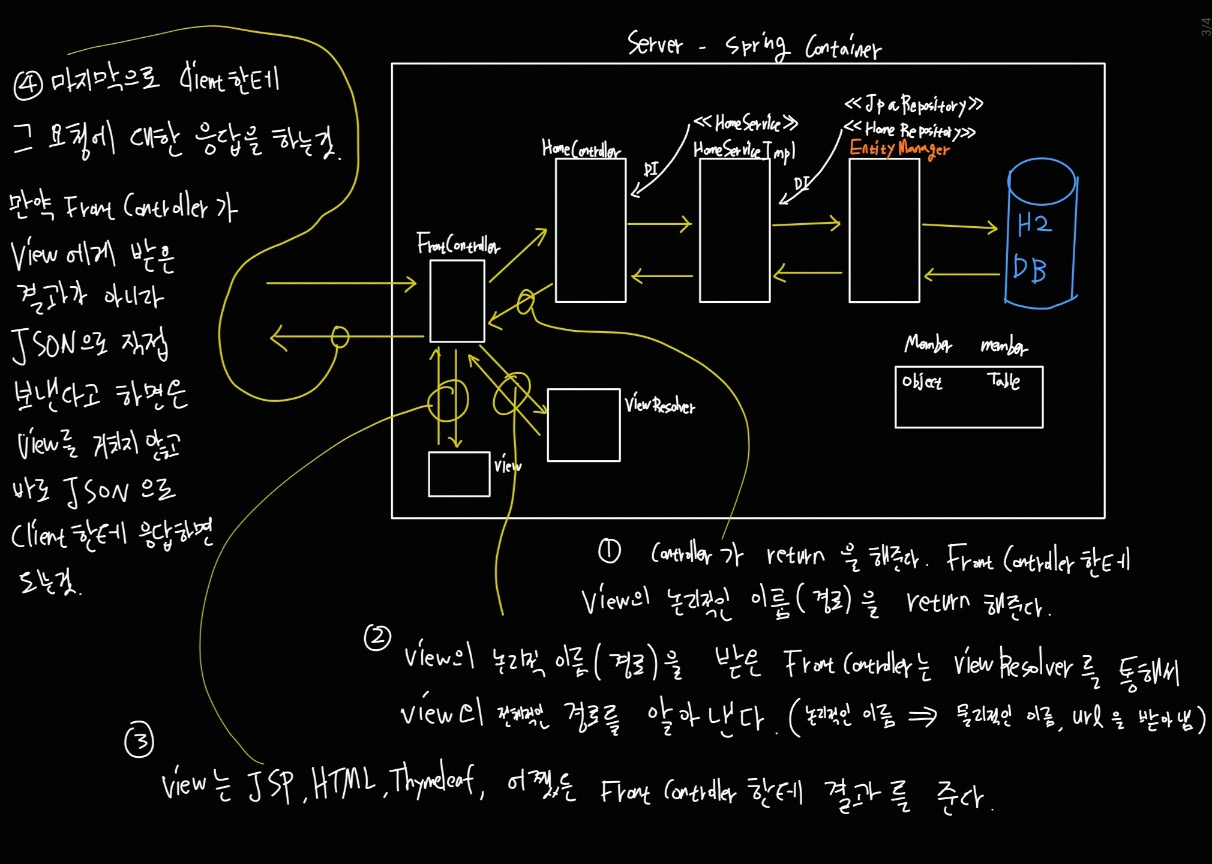 3/4
Server - Spring Container
④ 마지막으로 Client한테
그 요청에 대한 응답을 하는것.
만약 Front Controller가
View에게 받은
결과가 아니라
JSON으로 직접
보낸다고 하면은
View를 거치지 않고
바로 JSON으로
Client한테 응답하면
되는것.
FrontController
HomeController
DI
<<HomeService>>
HomeServiceImpl
DI
<<JpaRepository>>
<<Home Repository>>
EntityManager
H2
DB
Member member
Object Table
ViewResolver
View
① Controller가 return을 해준다. Front Controller한테
View의 논리적인 이름(경로)을 return 해준다.
② View의 논리적 이름(경로)을 받은 Front Controller는 ViewResolver를 통해서
View의 전체적인 경로를 알아낸다. (논리적인 이름 ⇒ 물리적인 이름, url을 받아냄)
③
View는 JSP, HTML, Thymeleaf, 어쨌든 Front Controller한테 결과를 준다.